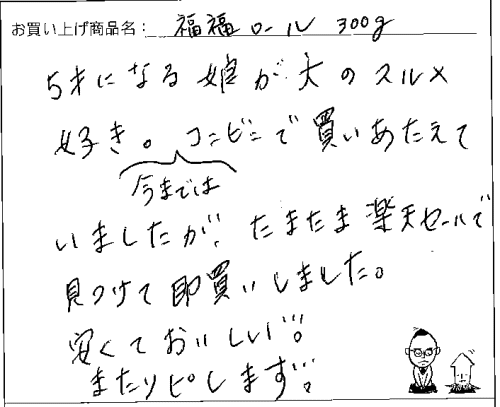 お買い上げ商品名: 福福ロール 300g
5才になる娘が大のスルメ
好き。コンビニで買いあたえて
今までは
いましたが、たまたま楽天セールで
見つけて即買いしました。
安くておいしい!!。
またリピします!!。